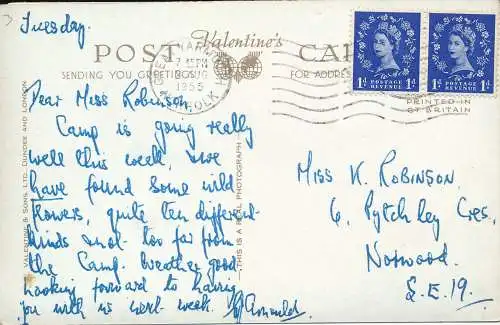 Tuesday.
POST Valentine's CARD
SENDING YOU GREETINGS
FOR ADDRESS
7 15 PM
AUG
1955
SUFFOLK
1d POSTAGE REVENUE 1d
1d POSTAGE REVENUE 1d
PRINTED IN
GT BRITAIN
Dear Miss Robinson,
Camp is going really
well this week, & we
have found some wild
flowers, quite ten different
kinds & not too far from
the Camp. Weather good
Looking forward to having
you with us next week.
VALENTINE & SONS, LTD., DUNDEE AND LONDON
THIS IS A REAL PHOTOGRAPH
MISS K. ROBINSON,
6, Pytchley Cres,
Norwood.
S.E.19.